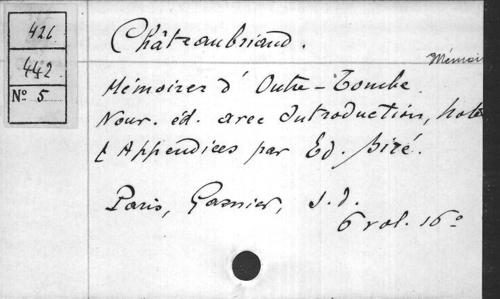 426
442
Nº 5
Châteaubriand.
Mémoir
Mémoires d'Outre-Tombe.
Nouv. éd. avec Introduction, Note
& Appendices par Ed. Biré.
Paris, Garnier, s.d.
6 vol. 16°